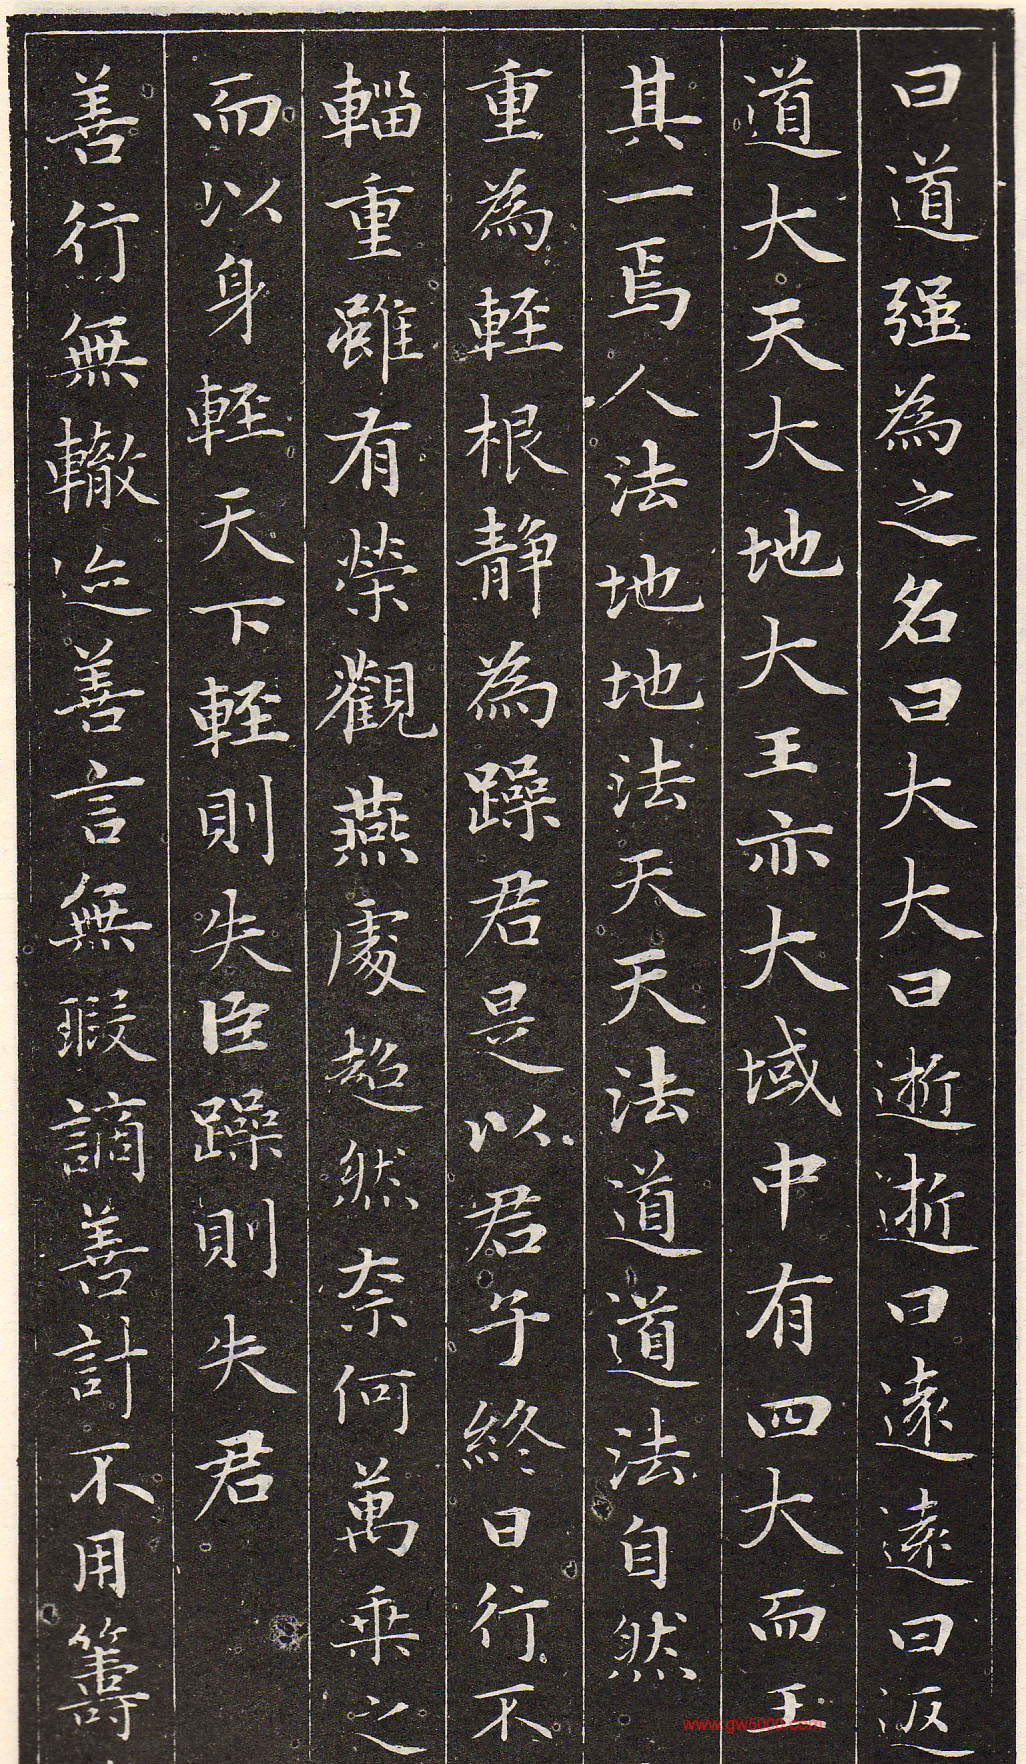 曰道强為之名曰大大曰逝逝曰遠遠曰返
道大天大地大王亦大域中有四大而王
其一焉人法地地法天天法道道法自然
重為輕根静為躁君是以君子終日行不
輜重雖有榮觀燕處超然奈何萬乗之
而以身輕天下輕則失臣躁則失君
善行無轍迹善言無瑕謫善計不用籌
www.gw5000.com